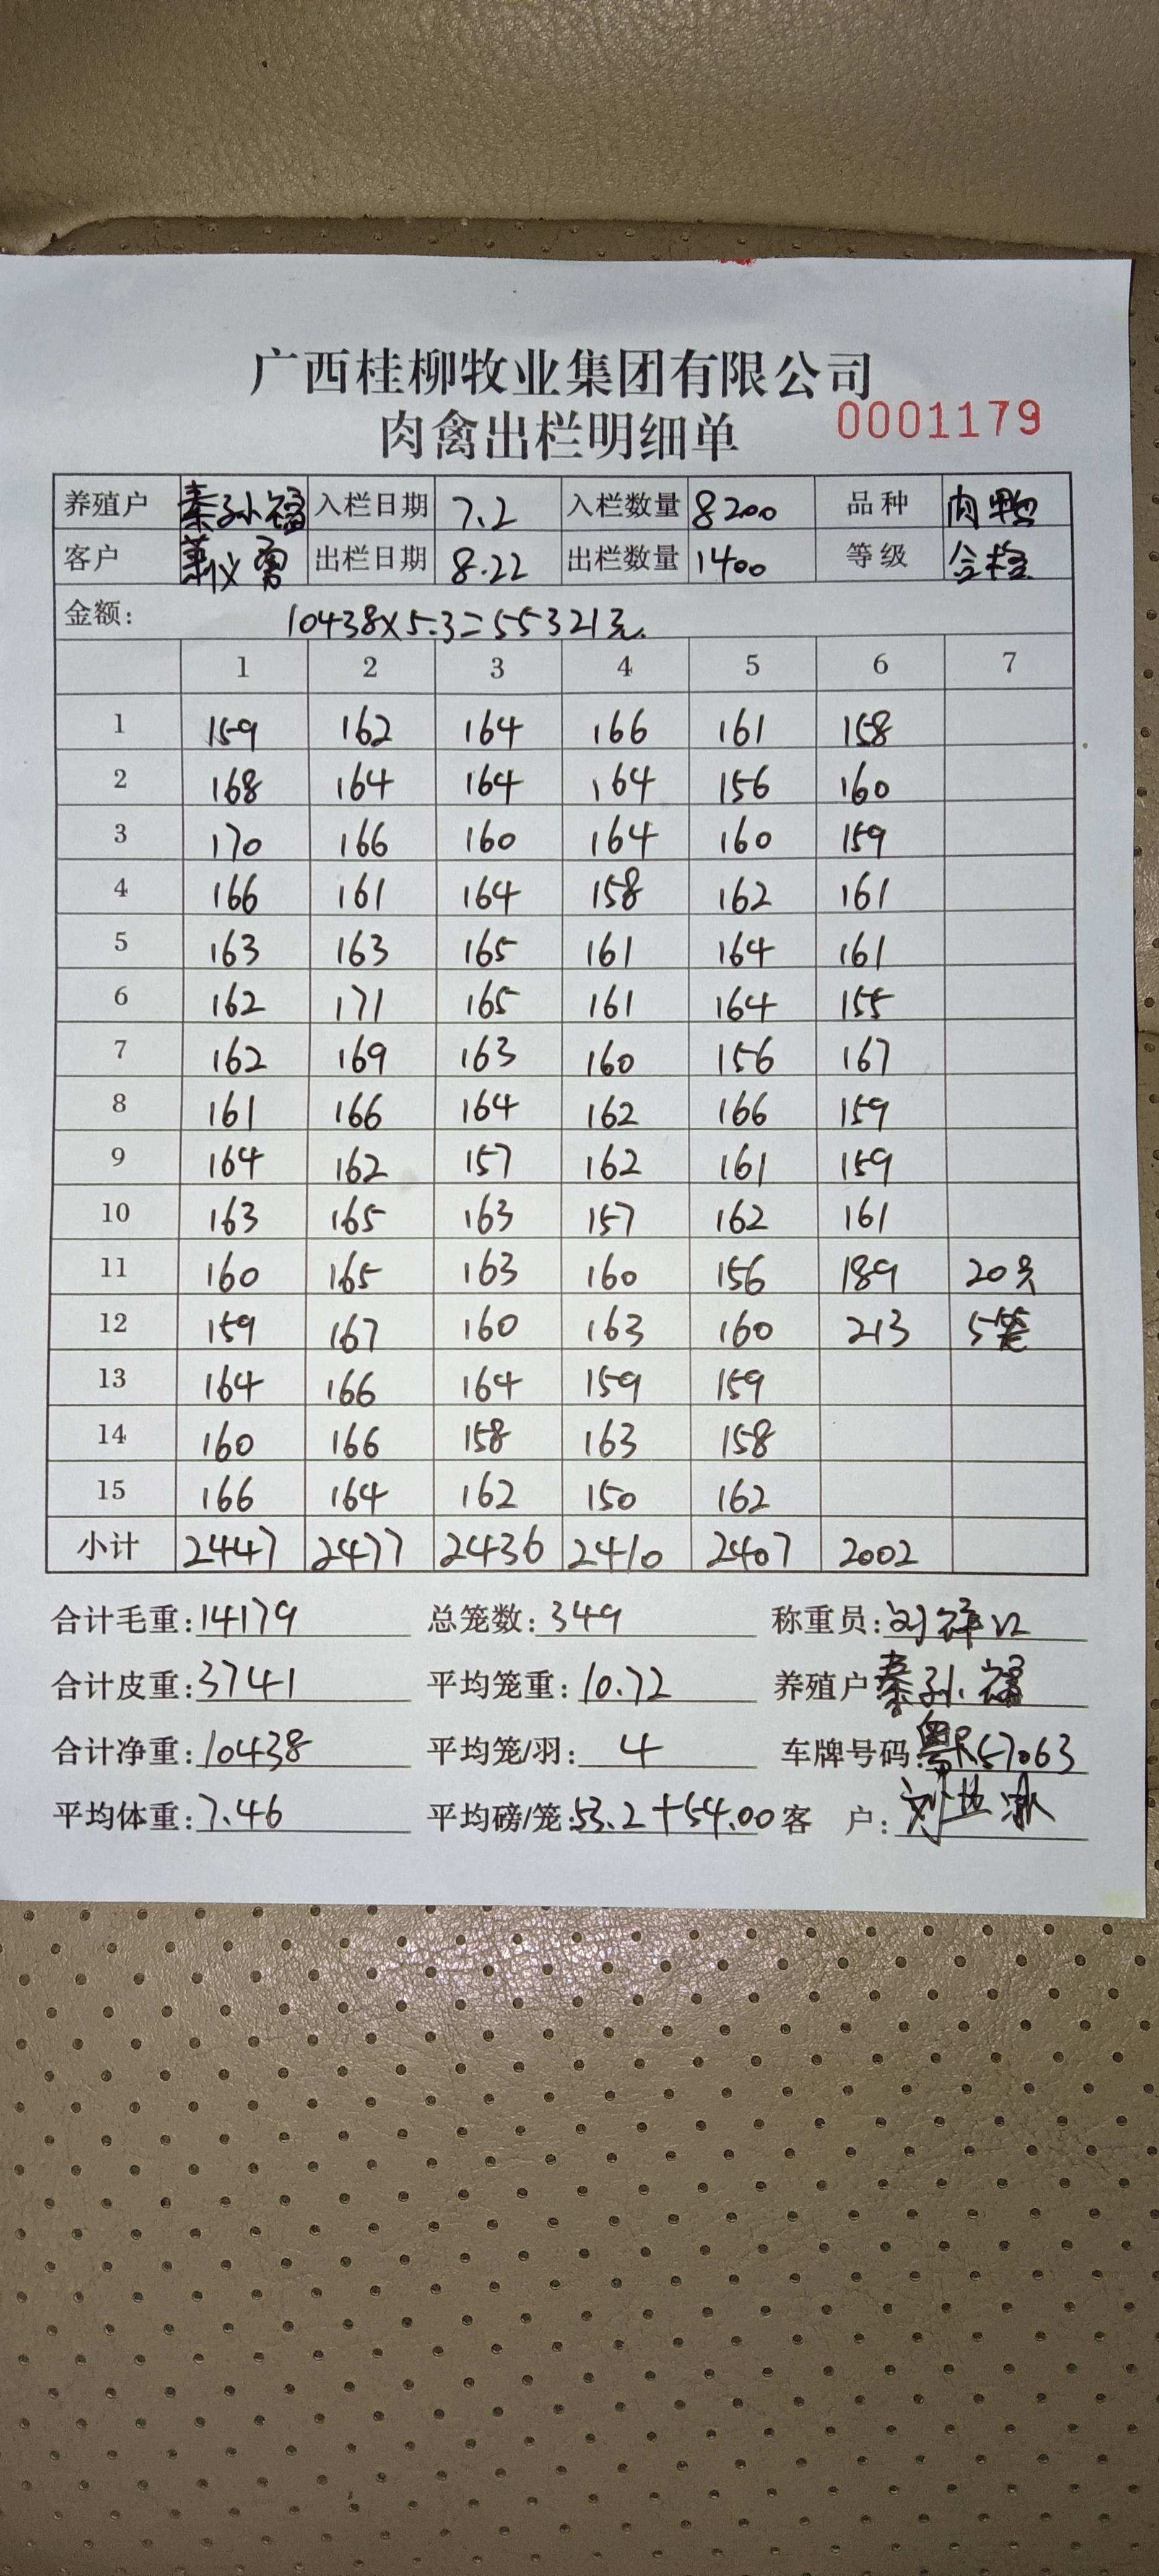 广西桂柳牧业集团有限公司
肉禽出栏明细单 0001179
养殖户 秦孙福 入栏日期 7.2 入栏数量 8200 品种 肉鸭
客户 出栏日期 8.22 出栏数量 1400 等级 合格
金额: 10438×5.3=55321元.
1 2 3 4 5 6 7
1 159 162 164 166 161 158
2 168 164 164 164 156 160
3 170 166 160 164 160 159
4 166 161 164 158 162 161
5 163 163 165 161 164 161
6 162 171 165 161 164 155
7 162 169 163 160 156 167
8 161 166 164 162 166 159
9 164 162 157 162 161 159
10 163 165 163 157 162 161
11 160 165 163 160 156 189 20只
12 159 167 160 163 160 213 5笼
13 164 166 164 159 159
14 160 166 158 163 158
15 166 164 162 150 162
小计 2447 2477 2436 2410 2407 2002
合计毛重: 14179 总笼数: 349 称重员:
合计皮重: 3741 平均笼重: 10.72 养殖户 秦孙福
合计净重: 10438 平均笼/羽: 4 车牌号码: 57063
平均体重: 7.46 平均磅/笼: 53.2+54.00 客 户: